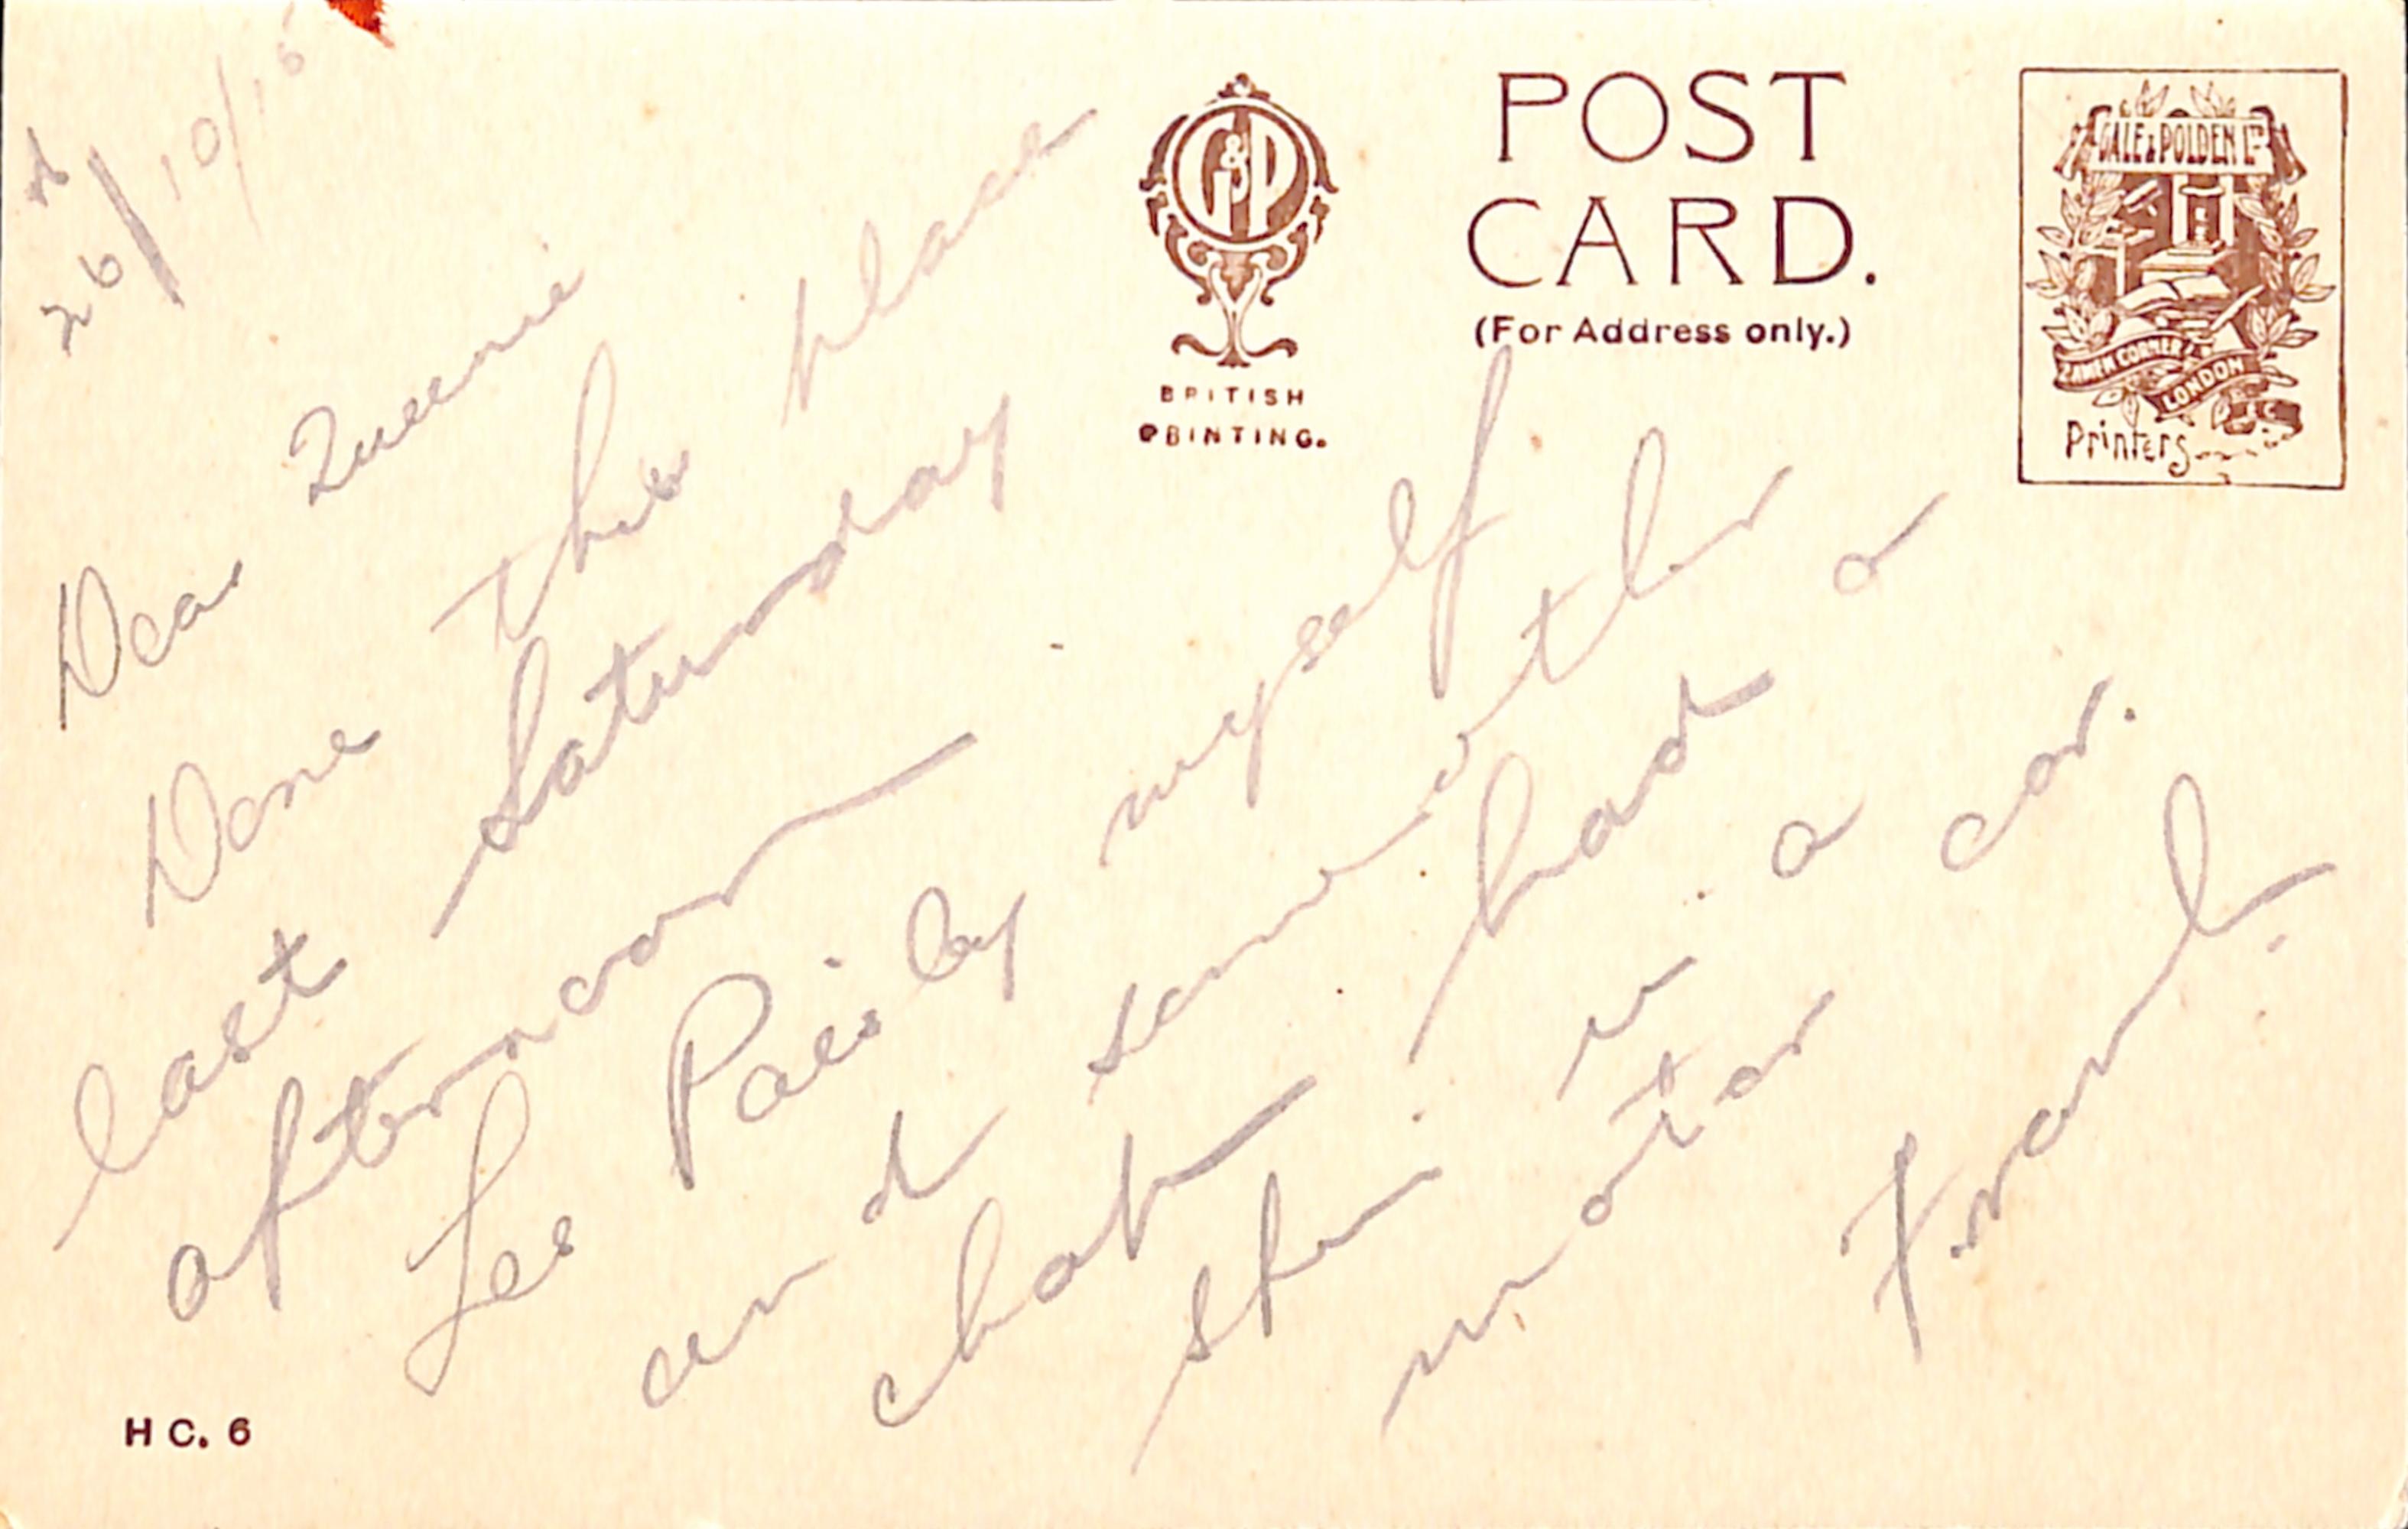 26/10/15
Dear Queenie
Done this place
last Saturday
afternoon
Les Paisley myself
and another
chap had a
spin in a
motor car.
Frank.
G&P
BRITISH
PRINTING.
POST
CARD.
(For Address only.)
GALE & POLDEN LTD
2 AMEN CORNER
LONDON
E.C.
Printers
H C. 6